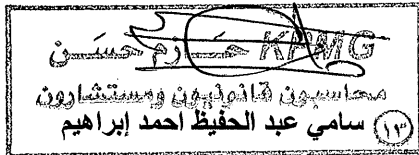 KPMG حازم حسن
محاسبون قانونيون ومستشارون
سامي عبد الحفيظ احمد إبراهيم (١٣)